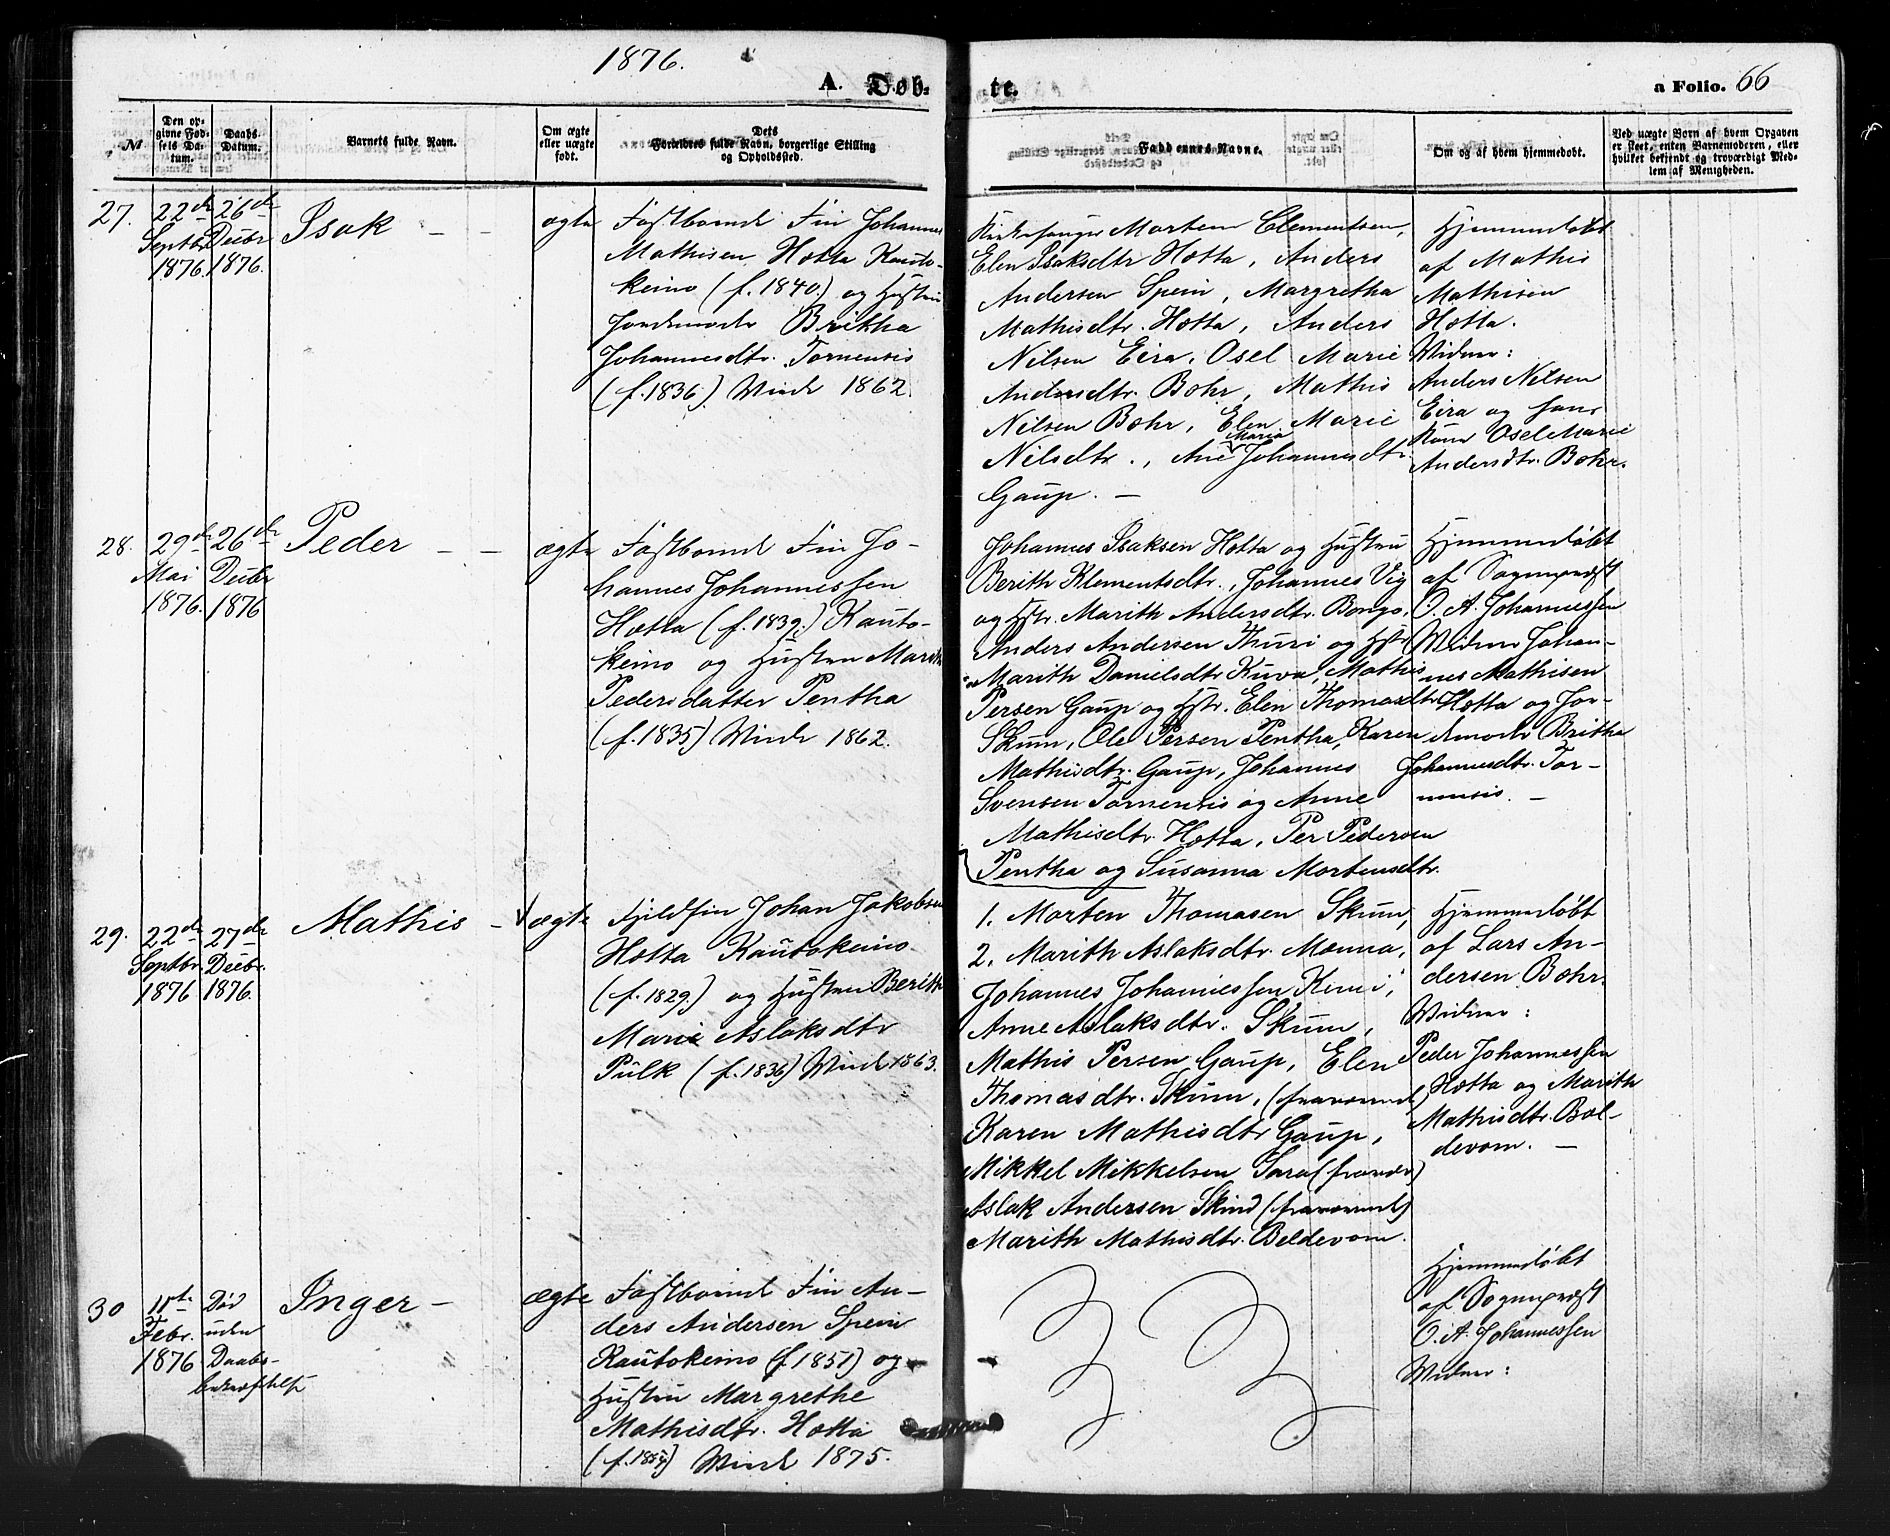 1876.
A. Døb-
te.
a Folio. 66
№
Den op-
givne Fød-
sels Da-
tum.
Daabs-
Datum.
Barnets fulde Navn.
Om ægte
eller uægte
født.
Dets
Forældres fulde Navn, borgerlige Stilling
og Opholdssted.
Faddernes Navne.
Om og af hvem hjemmedøbt.
Ved uægte Børn af hvem Opgaven
er skeet, enten Barnemoderen, eller
hvilket bekjendt og troværdigt Med-
lem af Menigheden.
27.
22de
Septbr
1876.
26de
Decbr
1876.
Isak
ægte
Fastboende Fin Johannes
Mathisen Hætta Kauto-
keino (f. 1840.) og Hustru
Jordemoder Britha
Johannesdtr. Tornensis
(f. 1836.) Viede 1862.
Kirkesanger Morten Clementsen,
Elen Isaksdtr Hætta, Anders
Andersen Spein, Margretha
Mathisdtr. Hætta, Anders
Nilsen Eira, Osel Marie
Andersdtr. Bohr, Mathis
Nilsen Bæhr, Elen Marie
Nilsdtr., Ane Maria Johannesdtr.
Gaup. —
Hjemmedøbt
af Mathis
Mathisen
Hætta.
Vidner:
Anders Nilsen
Eira og hans
Kone Osel Marie
Andersdtr. Bohr.
28.
29de
Mai
1876.
26de
Decbr
1876
Peder
ægte
Fastboende Fin Jo-
hannes Johannessen
Hætta (f. 1839.) Kauto-
keino og Hustru Marith
Pedersdatter Pentha
(f. 1835) Viede 1862.
Johannes Isaksen Hætta og Hustru
Berith Klementsdtr., Johannes Vig
og Hstr. Marith Andersdtr. Bongo,
Anders Andersen Thuri og Hstr
Marith Danielsdtr Kuva, Mathis
Persen Gaup og Hstr. Elen Thomasdtr
Skum, Ole Persen Pentha, Karen
Mathisdtr. Gaup, Johannes
Svensen Tornensis og Anne
Mathisdtr. Hætta, Per Pedersen
Pentha og Susanna Mortensdtr.
Hjemmedøbt
af Sognepræst
O. A. Johannessen
Vidner Johan-
nes Mathisen
Hætta og Jor-
demoder Britha
Johannesdtr. Tor-
nensis. —
29.
22de
Septbr.
1876
27de
Decbr.
1876.
Mathis
ægte
Fjeldfin Johan Jakobsen
Hætta Kautokeino
(f. 1829.) og Hustru Berith
Marie Aslaksdtr
Pulk (f. 1836) Viede 1863.
1. Morten Thomasen Skum,
2. Marith Aslaksdtr. Monna,
Johannes Johannessen Kimi,
Anne Aslaksdtr. Skum,
Mathis Persen Gaup, Elen
Thomasdtr. Skum, (fraværende)
Karen Mathisdtr Gaup,
Mikkel Mikkelsen Sara (fravær)
Aslak Andersen Skind (fraværende)
Marith Mathisdtr. Beldevom.
Hjemmedøbt
af Lars An-
dersen Bohr.
Vidner:
Peder Johannessen
Hætta og Marith
Mathisdtr. Bal-
devom. —
30
11te
Febr.
1876
Død
uden
Daabs-
bekræftelse
Inger
ægte
Fastboende Fin An-
ders Andersen Spein
Kautokeino (f. 1851) og
Hustru Margrethe
Mathisdtr. Hætta
(f. 1854) Viede 1875.
Hjemmedøbt
af Sognepræst
O. A. Johannessen
Vidner: